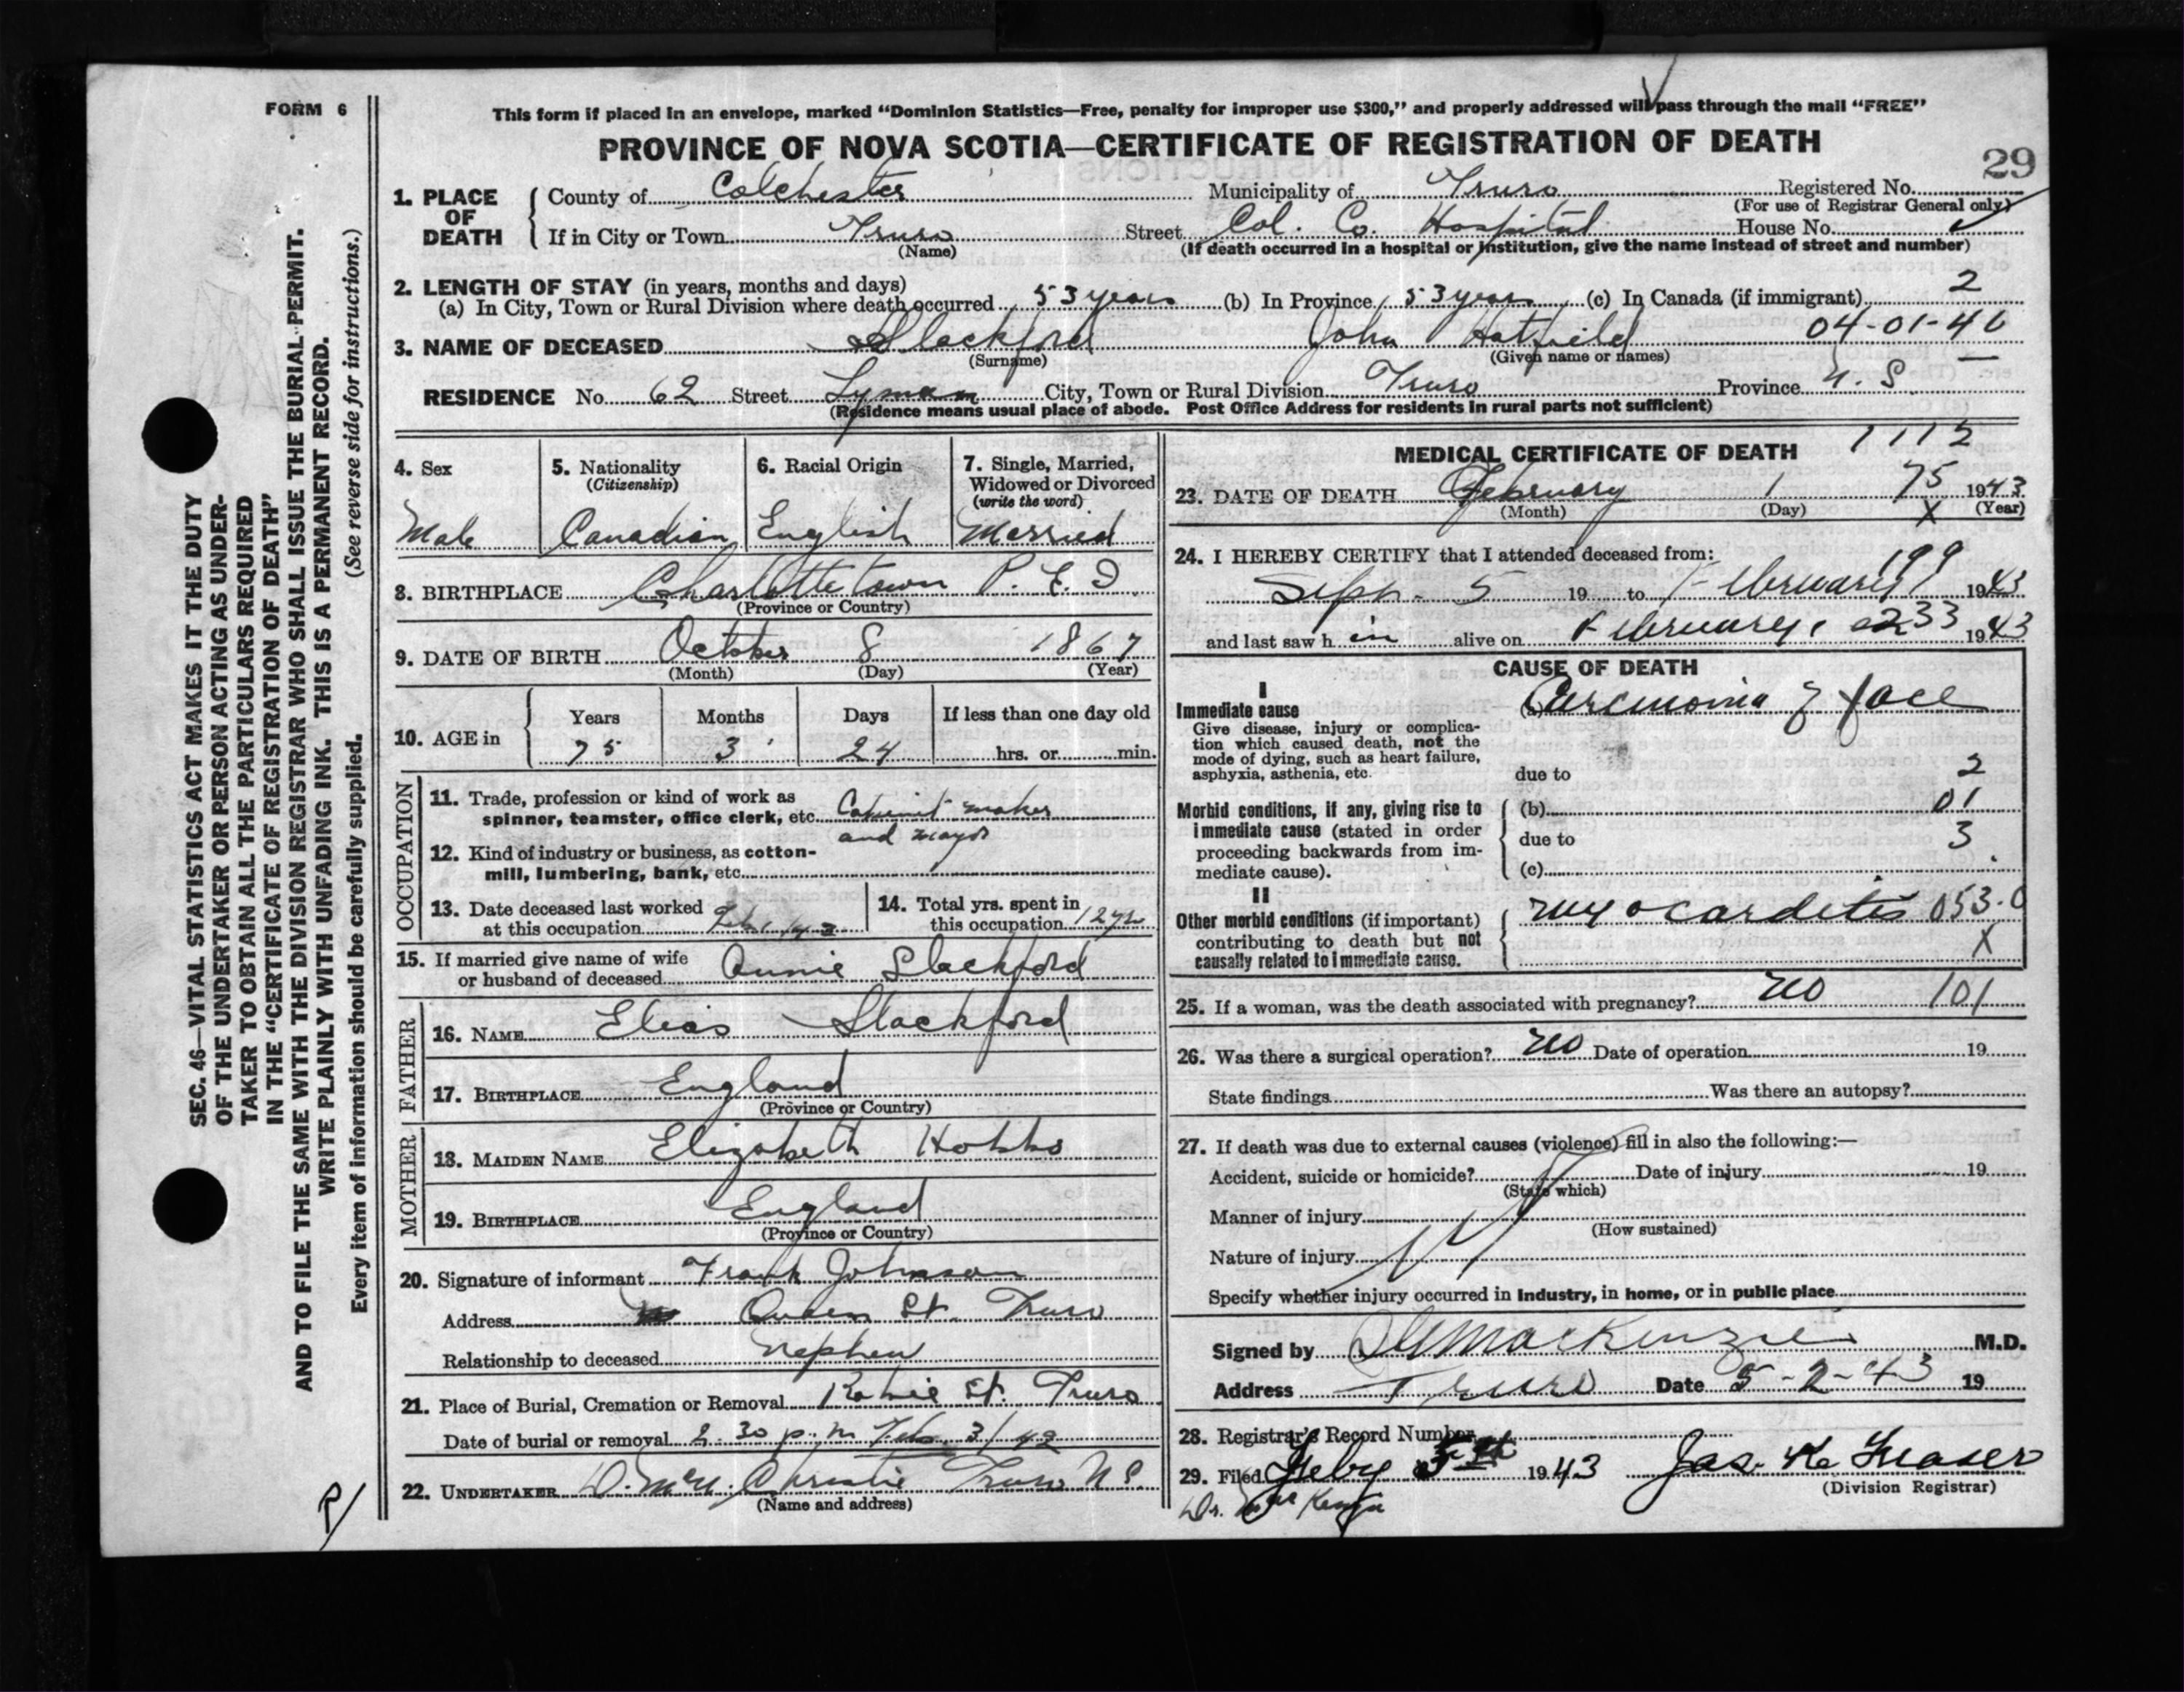 FORM 6
This form if placed in an envelope, marked “Dominion Statistics—Free, penalty for improper use $300,” and properly addressed will pass through the mail “FREE”
PROVINCE OF NOVA SCOTIA—CERTIFICATE OF REGISTRATION OF DEATH
29
1. PLACE OF DEATH
County of Colchester Municipality of Truro Registered No.
(For use of Registrar General only)
If in City or Town Truro Street Col. Co. Hospital House No.
(Name) (If death occurred in a hospital or institution, give the name instead of street and number)
2. LENGTH OF STAY (in years, months and days)
(a) In City, Town or Rural Division where death occurred 53 years (b) In Province 53 years (c) In Canada (if immigrant) 2
3. NAME OF DECEASED Slackford John Hatfield 04-01-46
(Surname) (Given name or names)
RESIDENCE No. 62 Street Lyman City, Town or Rural Division Truro Province N.S
(Residence means usual place of abode. Post Office Address for residents in rural parts not sufficient)
4. Sex Male
5. Nationality (Citizenship) Canadian
6. Racial Origin English
7. Single, Married, Widowed or Divorced (write the word) Married
8. BIRTHPLACE Charlottetown P.E.I
(Province or Country)
9. DATE OF BIRTH October 8 1867
(Month) (Day) (Year)
10. AGE in Years 75 Months 3 Days 24 If less than one day old hrs. or min.
OCCUPATION
11. Trade, profession or kind of work as
spinner, teamster, office clerk, etc. Cabinit maker
and mayor
12. Kind of industry or business, as cotton-
mill, lumbering, bank, etc.
13. Date deceased last worked
at this occupation
14. Total yrs. spent in
this occupation 12 yrs
15. If married give name of wife
or husband of deceased Annie Slackford
FATHER
16. NAME Elias Slackford
17. BIRTHPLACE England
(Province or Country)
MOTHER
18. MAIDEN NAME Elizabeth Hobbs
19. BIRTHPLACE England
(Province or Country)
20. Signature of informant Frank Johnson
Address Queen St. Truro
Relationship to deceased Nephew
21. Place of Burial, Cremation or Removal Robie St. Truro
Date of burial or removal 2.30 p.m Feb. 3/43
22. UNDERTAKER D. McN. Christie Truro N.S.
(Name and address)
MEDICAL CERTIFICATE OF DEATH 1112
23. DATE OF DEATH February 1 75 1943
(Month) (Day) X (Year)
24. I HEREBY CERTIFY that I attended deceased from: 199
Sept. 5 19 to February 1 1943
and last saw h im alive on February 1 233 1943
CAUSE OF DEATH
I
Immediate cause
Give disease, injury or complica-
tion which caused death, not the
mode of dying, such as heart failure,
asphyxia, asthenia, etc.
(a) Carcinoma of face
due to 2
Morbid conditions, if any, giving rise to
immediate cause (stated in order
proceeding backwards from im-
mediate cause).
(b) 01
due to 3
(c)
II
Other morbid conditions (if important)
contributing to death but not
causally related to immediate cause.
myocarditis 053.0
X
25. If a woman, was the death associated with pregnancy? no 101
26. Was there a surgical operation? no Date of operation 19
State findings Was there an autopsy?
27. If death was due to external causes (violence) fill in also the following:—
Accident, suicide or homicide? Date of injury 19
(State which)
Manner of injury
(How sustained)
Nature of injury
Specify whether injury occurred in industry, in home, or in public place
Signed by MacKenzie M.D.
Address Truro Date 5-2-43 19
28. Registrar's Record Number
29. Filed Feby 5th 1943 Jas. K. Fraser
(Division Registrar)
Dr. MacKenzie
SEC. 46—VITAL STATISTICS ACT MAKES IT THE DUTY
OF THE UNDERTAKER OR PERSON ACTING AS UNDER-
TAKER TO OBTAIN ALL THE PARTICULARS REQUIRED
IN THE “CERTIFICATE OF REGISTRATION OF DEATH”
AND TO FILE THE SAME WITH THE DIVISION REGISTRAR WHO SHALL ISSUE THE BURIAL PERMIT.
WRITE PLAINLY WITH UNFADING INK. THIS IS A PERMANENT RECORD.
Every item of information should be carefully supplied. (See reverse side for instructions.)